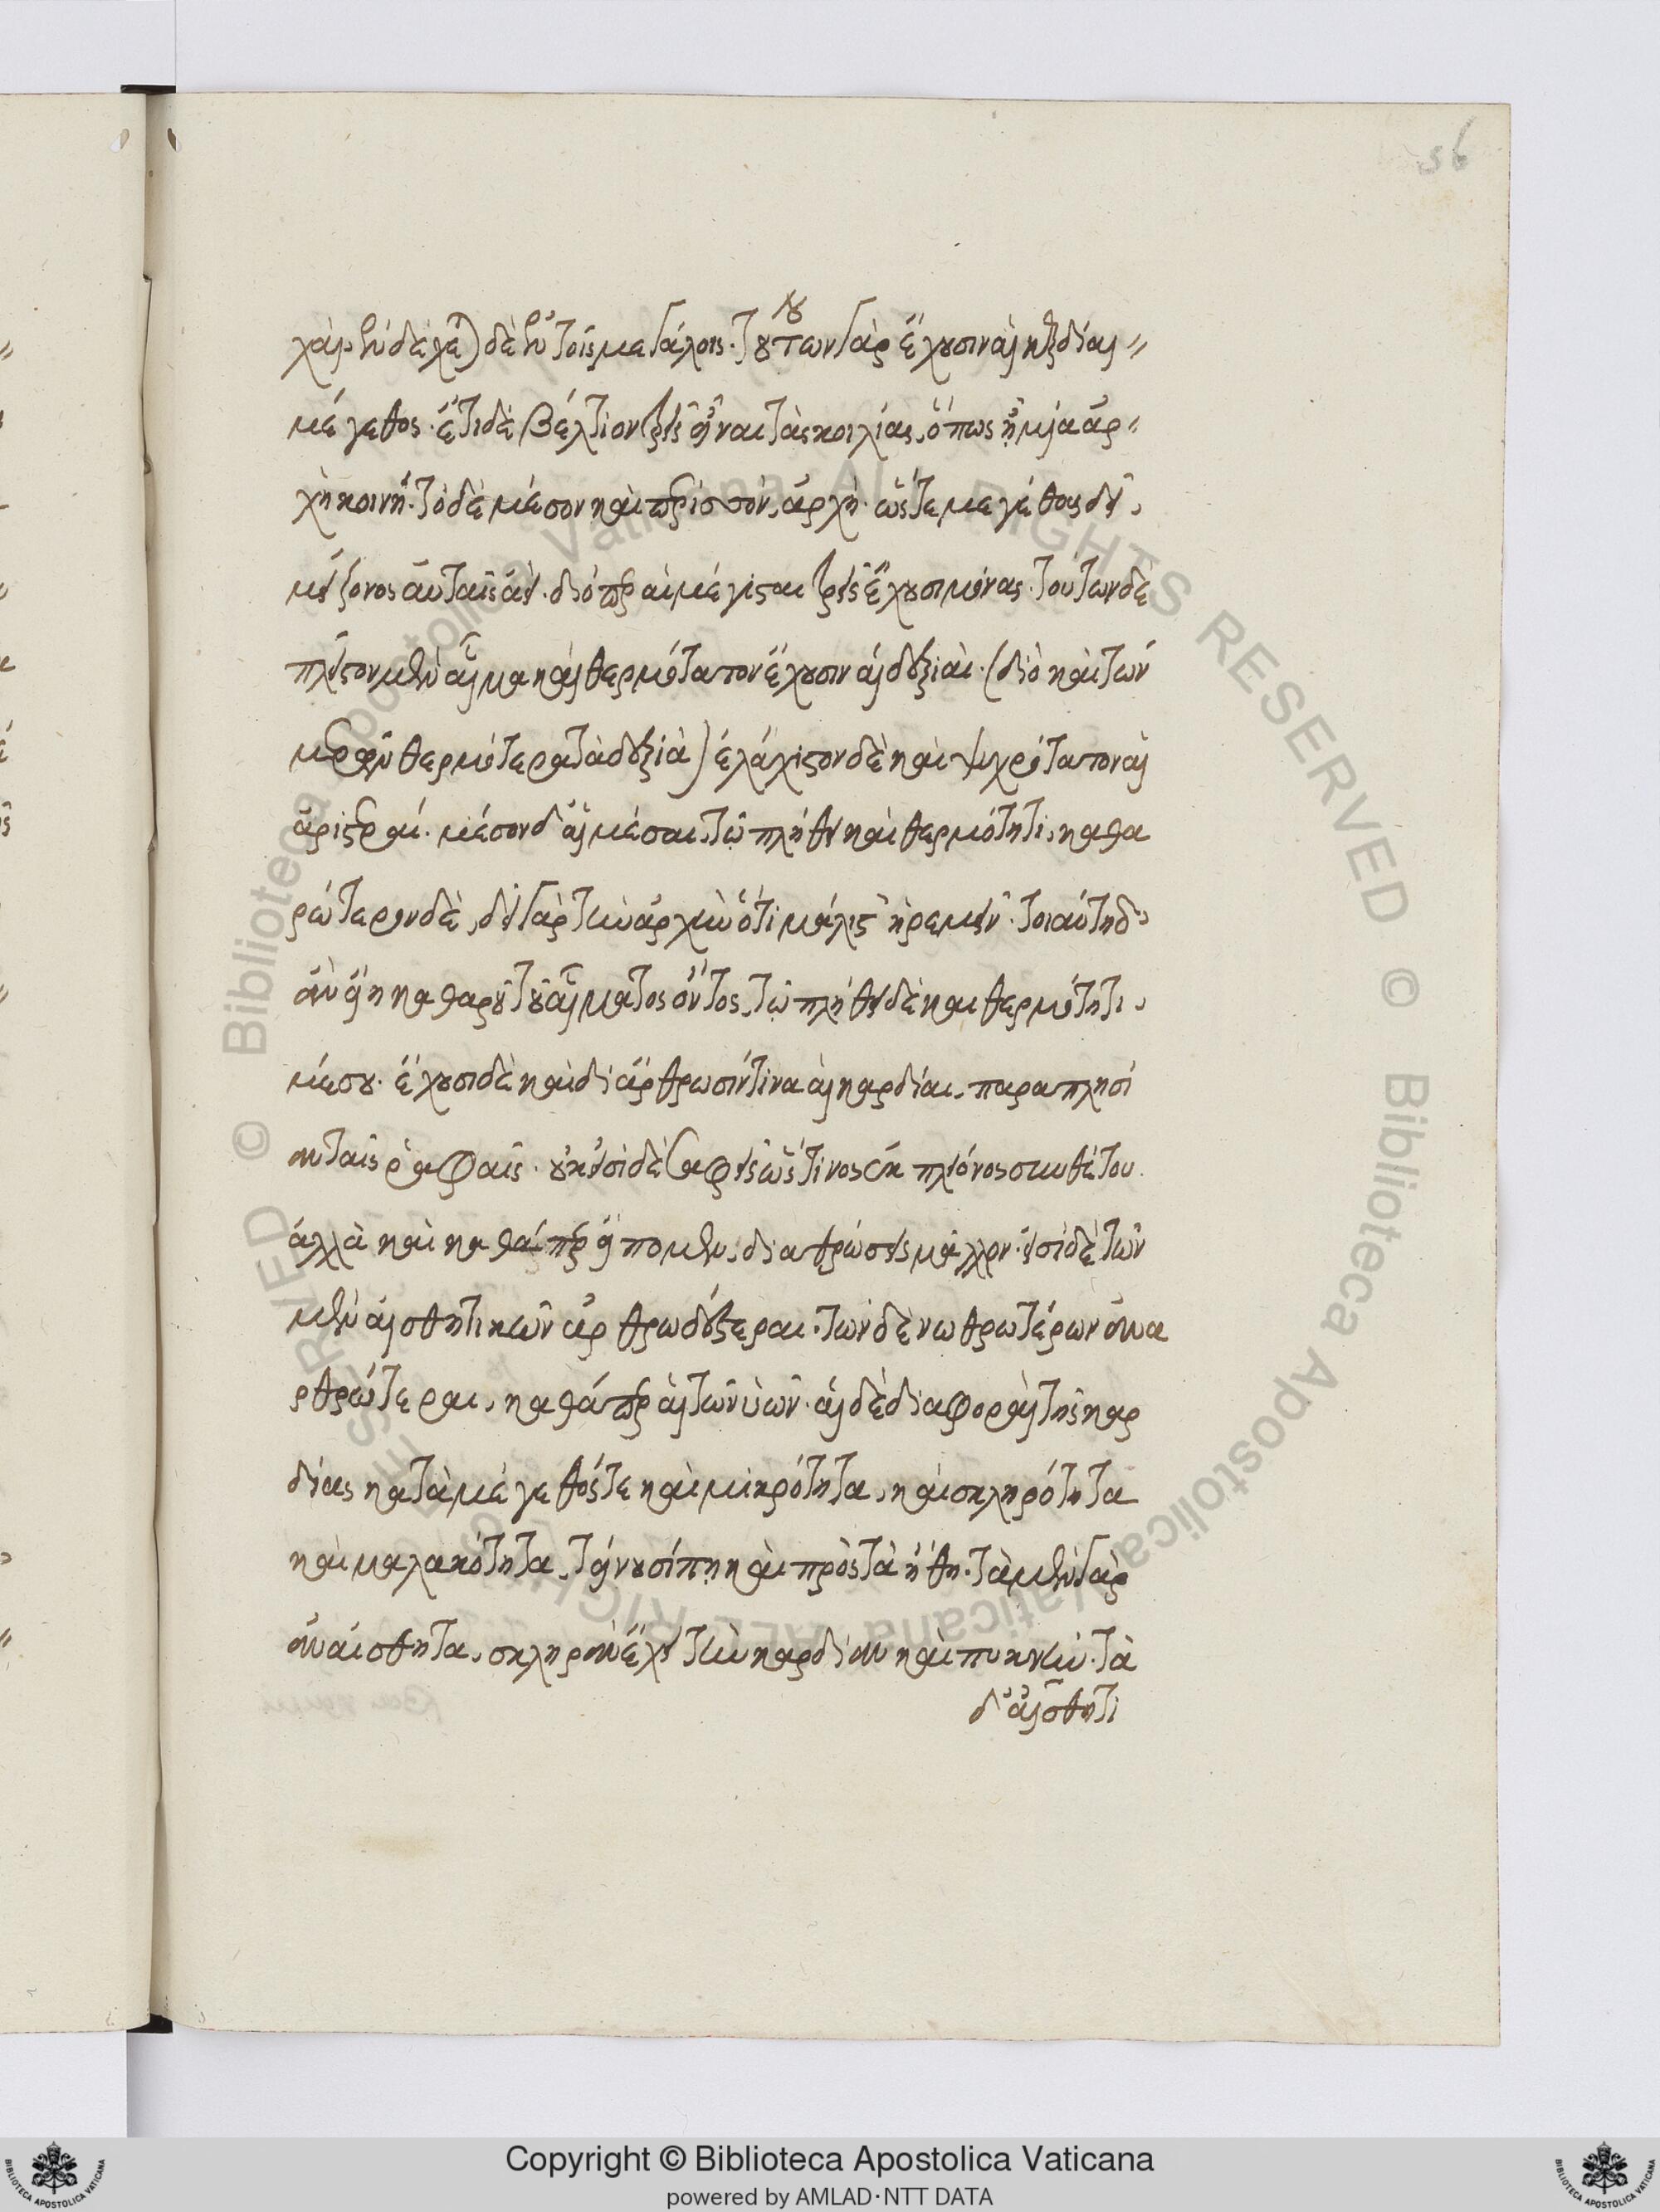 56
χαί. ἐνδέχεται δὲ ἐν τοῖς μεγάλοις. τούτων γὰρ ἔχουσιν αἱ καρδίαι
μέγεθος. ἔτι δὲ βέλτιον τρεῖς εἶναι τὰς κοιλίας, ὅπως ᾖ μία ἀρ-
χὴ κοινή. τὸ δὲ μέσον καὶ περισσὸν, ἀρχή. ὥστε μεγέθους δεῖ
μείζονος αὐταῖς ἀεί. διόπερ αἱ μέγισται τρεῖς ἔχουσι μόνας. τούτων δὲ
πλεῖστον μὲν αἷμα καὶ θερμότατον ἔχουσιν αἱ δεξιαὶ. (διὸ καὶ τῶν
μερῶν θερμότερα τὰ δεξιὰ) ἐλάχιστον δὲ καὶ ψυχρότατον αἱ
ἀριστεραί. μέσον δ' αἱ μέσαι, τῷ πλήθει καὶ θερμότητι, καθα
ρώτερον δὲ, δεῖ γὰρ τὴν ἀρχὴν ὅτι μάλιστ' ἠρεμεῖν. τοιαύτη δ'
ἂν εἴη καθαροῦ τοῦ αἵματος ὄντος, τῷ πλήθει δὲ καὶ θερμότητι,
μέσου. ἔχουσι δὲ καὶ διάρθρωσίν τινα αἱ καρδίαι, παραπλησί
αν ταῖς ῥαφαῖς. οὐκ εἰσὶ δὲ συναφεῖς ὥς τινος ἐκ πλείονος συνθέτου.
ἀλλὰ καὶ καθάπερ εἴπομεν, διαρθρώσεις μᾶλλον. εἰσὶ δὲ τῶν
μὲν αἰσθητικῶν ἀρθρωδέστεραι. τῶν δὲ νωθροτέρων ἀνα
ρθρώτεραι, καθάπερ αἱ τῶν ὑῶν. αἱ δὲ διαφοραὶ τῆς καρ
δίας κατὰ μέγεθός τε καὶ μικρότητα, καὶ σκληρότητα
καὶ μαλακότητα, τείνουσί πῃ καὶ πρὸς τὰ ἤθη. τὰ μὲν γὰρ
ἀναίσθητα, σκληρὰν ἔχει τὴν καρδίαν καὶ πυκνήν. τὰ
δ' αἰσθητι
Copyright © Biblioteca Apostolica Vaticana
powered by AMLAD·NTT DATA